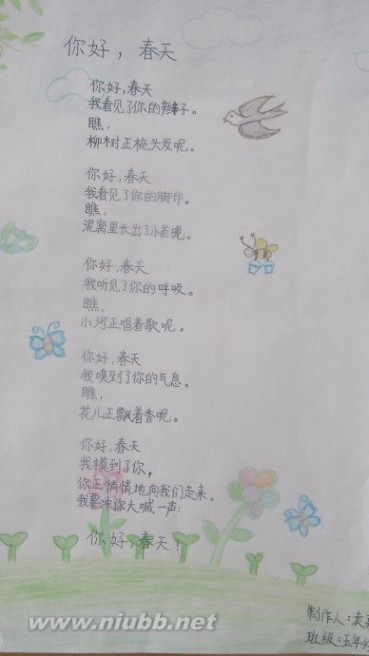 你好，春天
你好，春天
我看见了你的辫子。
瞧，
柳树正梳头发呢。
你好，春天
我看见了你的脚印。
瞧，
泥窝里长出了小苗呢。
你好，春天
我听见了你的呼吸。
瞧，
小河正唱着歌呢。
你好，春天
我嗅到了你的气息。
瞧，
花儿正飘着香呢。
你好，春天
我摸到了你，
你正悄悄地向我们走来。
我要冲你大喊一声：
你好，春天！
制作人：袁
班级：五年
www.niubb.net